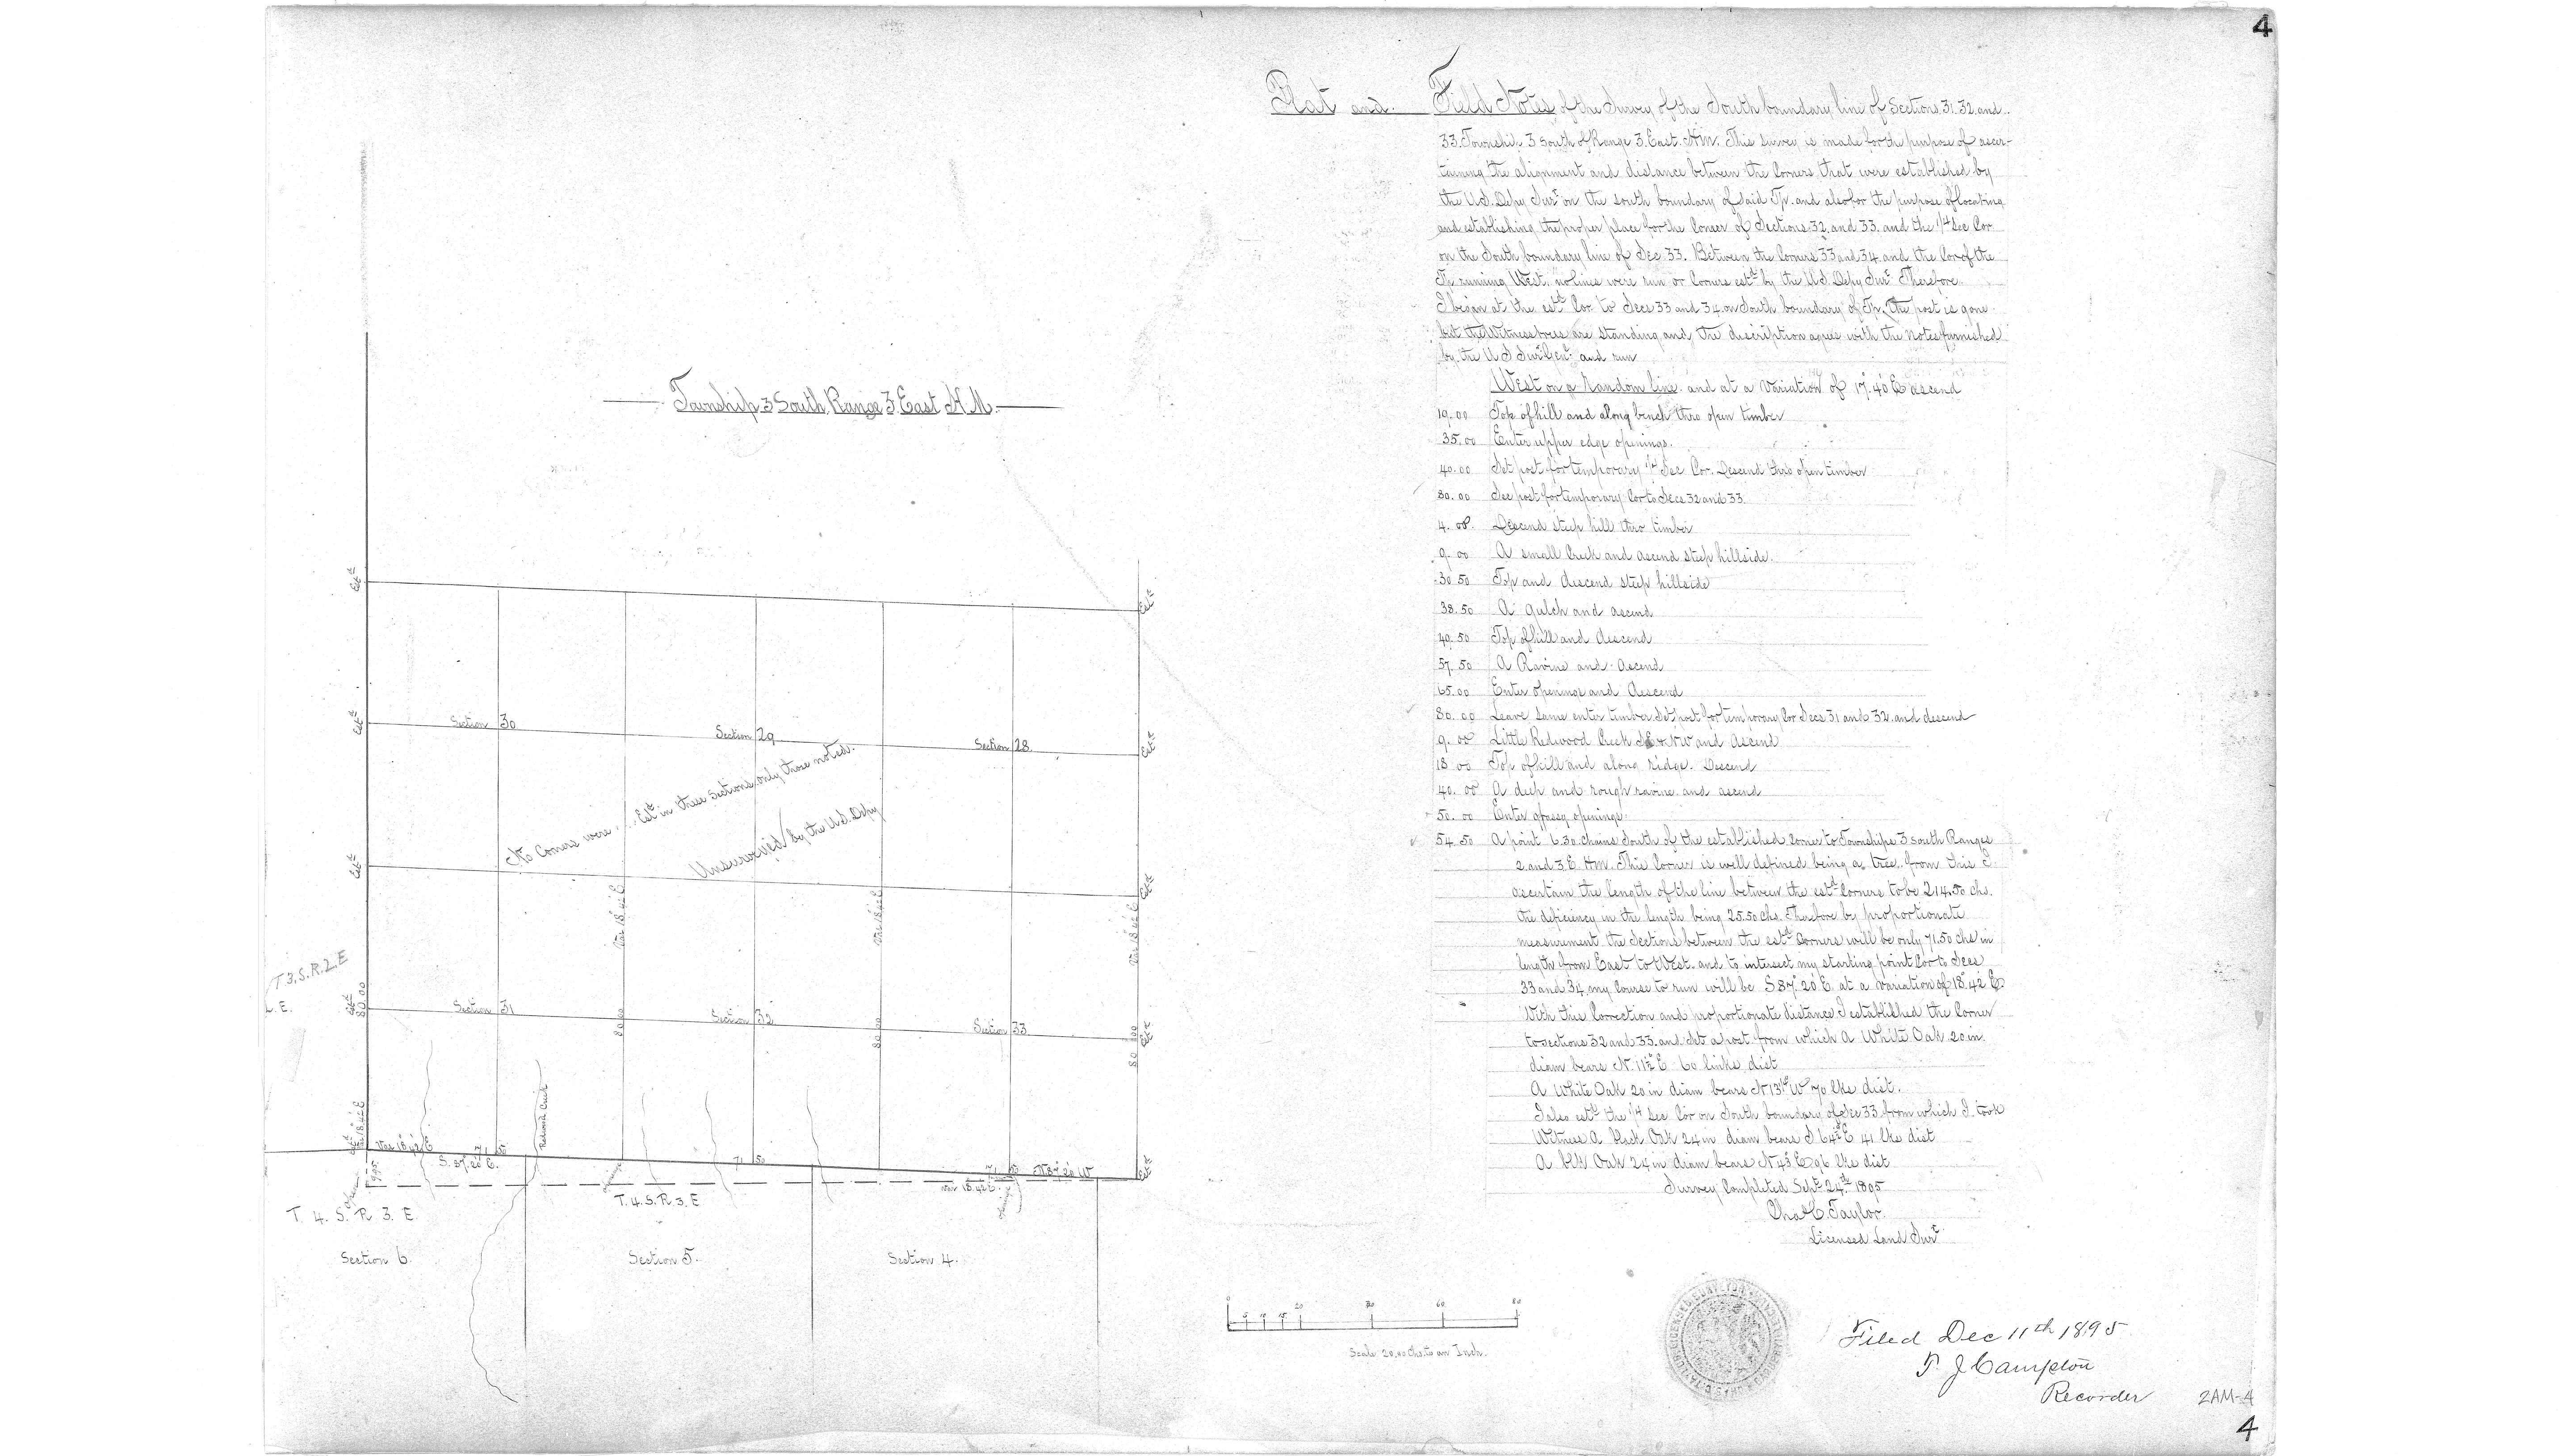 4
Plat and Field Notes of the Survey of the South boundary line of Sections 31. 32. and
33. Township. 3 South of Range 3. East. H.M. This survey is made for the purpose of ascer-
taining the alignment and distance between the Corners that were established by
the U.S. Depy Surr on the south boundary of said Tp. and also for the purpose of locating
and establishing the proper place for the Corner of Sections 32. and 33. and the 1/4 Sec Cor
on the South boundary line of Sec 33. Between the Corners 33 and 34 and the Cor of the
Tp running West. no lines were run or Corners estd by the U.S. Depy Surr Therefore
I began at the estd Cor to Secs 33 and 34 on South boundary of Tp. The post is gone
but the Witness trees are standing and the description agrees with the notes furnished
by the U S Surr Genl and run
West on a random line and at a Variation of 17° 40' E ascend
19.00 Top of hill and along bench thro open timber
35.00 Enter upper edge openings.
40.00 Set post for temporary 1/4 Sec Cor. Descend thro open timber
80.00 Set post for temporary Cor to Secs 32 and 33
4.00 Descend steep hill thro timber
9.00 A small Creek and ascend steep hillside.
30.50 Top and descend steep hillside
38.50 A gulch and ascend
40.50 Top of hill and descend
57.50 A Ravine and Ascend
65.00 Enter openings and descend
80.00 Leave same enter timber Set post for temporary Cor Secs 31 and 32. and descend
9.00 Little Redwood Creek SE & NW and Ascend
18.00 Top of hill and along ridge. Descend
40.00 A deep and rough ravine and ascend
50.00 Enter grassy openings.
54.50 A point 6.30 chains South of the established Corner to Townships 3 South Ranges
2 and 3 E. H.M. This Corner is well defined being a tree, from this I
ascertain the length of the line between the estd Corners to be 214.50 chs.
the deficiency in the length being 25.50 chs. Therefore by proportionate
measurement the Sections between the estd Corners will be only 71.50 chs in
length from East to West. and to intersect my starting point Cor to Secs
33 and 34 my Course to run will be S 87° 20' E. at a variation of 18° 42' E
With this Correction and proportionate distance I established the Corner
to sections 32 and 33. and set a post from which a White Oak 20 in
diam bears N. 11½° E 60 links dist
A White Oak 20 in diam bears N 13½° W 70 lks dist.
I also estd the 1/4 Sec Cor on South boundary of Sec 33 from which I took
Witness A black Oak 24 in diam bears S 64½° E 41 lks dist
A blk Oak 24 in diam bears N 43° E 96 lks dist
Survey Completed Sept 24th 1895
Chas. C. Taylor.
Licensed Land Surr
Township 3 South Range 3 East H.M.
Estd
Estd
Estd
Estd
Section 30
Section 29
Section 28
No Corners were Estd in these Sections only those noted.
Unsurveyed by the U.S. Depy
Estd
Estd
Var 18° 42' E
Var 18° 42' E
Var 18° 42' E
T 3, S. R. 2. E
L. E.
Estd
80 00
Section 31
80 00
Section 32
80 00
Section 33
80 00
Estd
Redwood Creek
Estd
Var 18 42 E
Var 18° 42' E
71 50
S. 87. 20 E.
71 50
71 50
N 87° 20' W
Var 18. 42 E.
Estd
9.95
T. 4. S. R 3. E.
T. 4. S. R 3. E
Section 6.
Section 5.
Section 4.
0 5 10 15 20 40 60 80
Scale 20.00 Chs. to an Inch.
Filed Dec 11th 1895
T. J Campton
Recorder
2AM-4
4